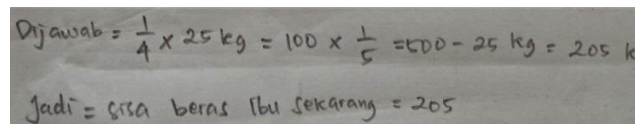 Dijawab = 1/4 x 25 kg = 100 x 1/5 = 500 - 25 kg = 205 k
Jadi = sisa beras Ibu sekarang = 205